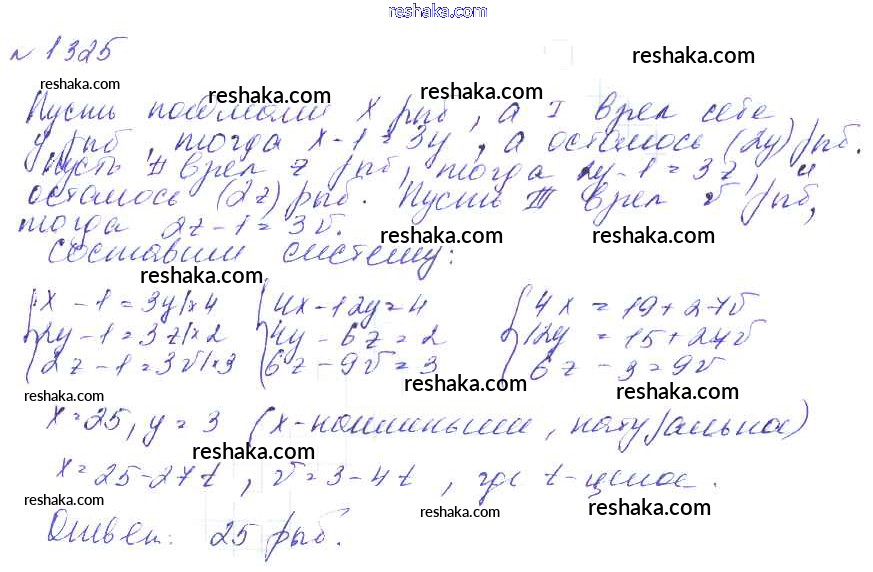 reshaka.com
№ 1325
reshaka.com
reshaka.com
reshaka.com
reshaka.com
Пусть поймали x рыб, а I взял себе
y рыб, тогда x-1=3y, а осталось (2y) рыб.
Пусть II взял z рыб, тогда 2y-1=3z, и
осталось (2z) рыб. Пусть III взял v рыб,
тогда 2z-1=3v.
reshaka.com
reshaka.com
Составим систему:
reshaka.com
{x-1=3y|×4 {4x-12y=4 {4x=19+27v
{2y-1=3z|×2 {4y-6z=2 {12y=15+27v
{2z-1=3v|×3 {6z-9v=3 {6z-3=9v
reshaka.com
reshaka.com
reshaka.com
x=25, y=3 (x-наименьшее, натуральное)
reshaka.com
x=25-27t, v=3-4t, где t-целое.
reshaka.com
reshaka.com
reshaka.com
Ответ: 25 рыб.